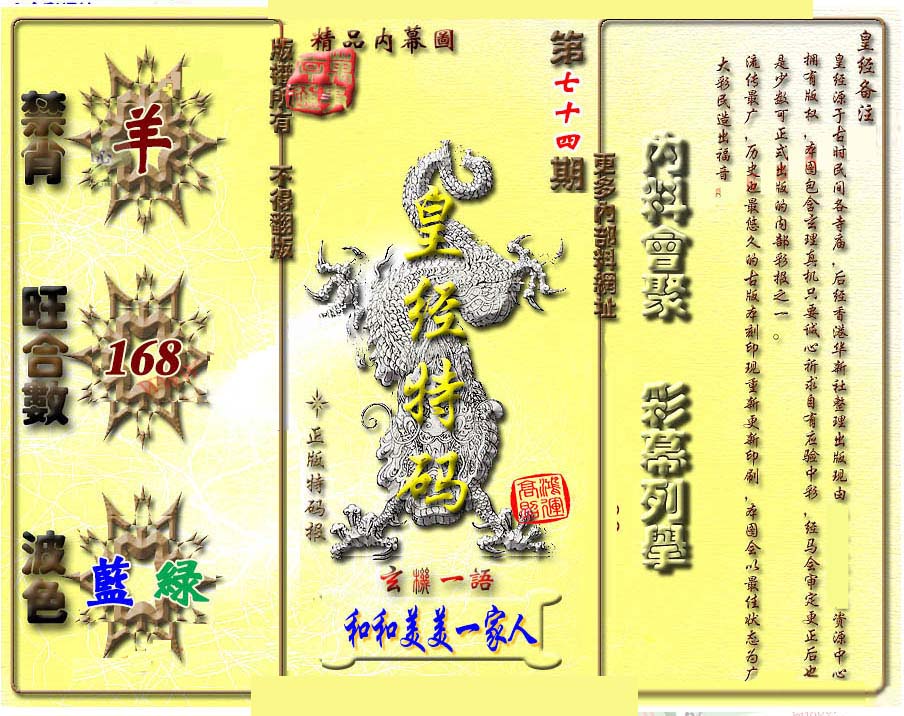 皇经备注
皇经源于古时民间各寺庙，后经香港华新社整理出版现由 资源中心
拥有版权，本图包含玄理真机只要诚心祈求自有应验中彩，经马会审定更正后也
是少数可正式出版的内部彩报之一。
流传最广，历史也最悠久的古版本刻印现重新更新印刷，本图会以最佳状态为广
大彩民造出福音
内料會聚 彩幕列舉
更多内部料網址
第七十四期
精品内幕圖
皇经特码
正版特码报
鴻運高照
玄機一語
和和美美一家人
版權所有 不得翻版
禁肖
羊
旺合數
168
波色
藍 綠